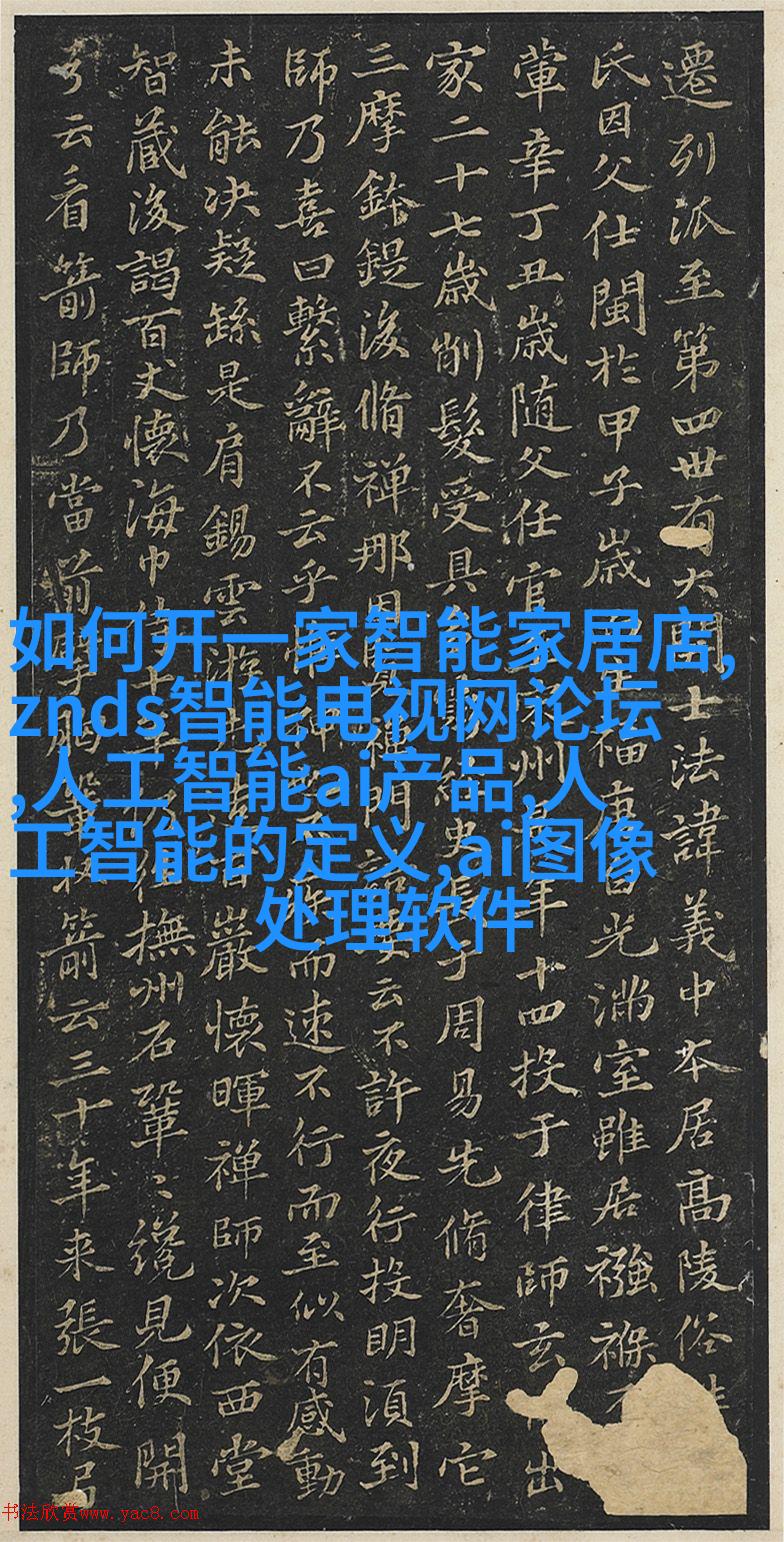 遷列派至第四世有大開士法諱義中本居高陵俗
氏因父仕閩於甲子歲 福唐 光滿室雖居襁褓
葷辛丁丑歲随父任官 州 年十四投于律師玄 出
家二十七歲削髮受具 於周易先脩奢摩它
三摩鉢鍉後脩禅那因 禪門 云不許夜行投明湏到
師乃喜曰繫辭不云乎 而速不行而至似有感動
未能决疑繇是肩錫雲遊 巖懷暉禅師次依西堂
智蔵後謁百丈懷海巾侍十年 撫州石鞏鞏纔見便開
弓云看箭師乃當前擘胸 箭云三十年来張一枝弓
如何开一家智能家居店,
znds智能电视网论坛
,人工智能ai产品,人
工智能的定义,ai图像
处理软件
书法欣赏www.yac8.com